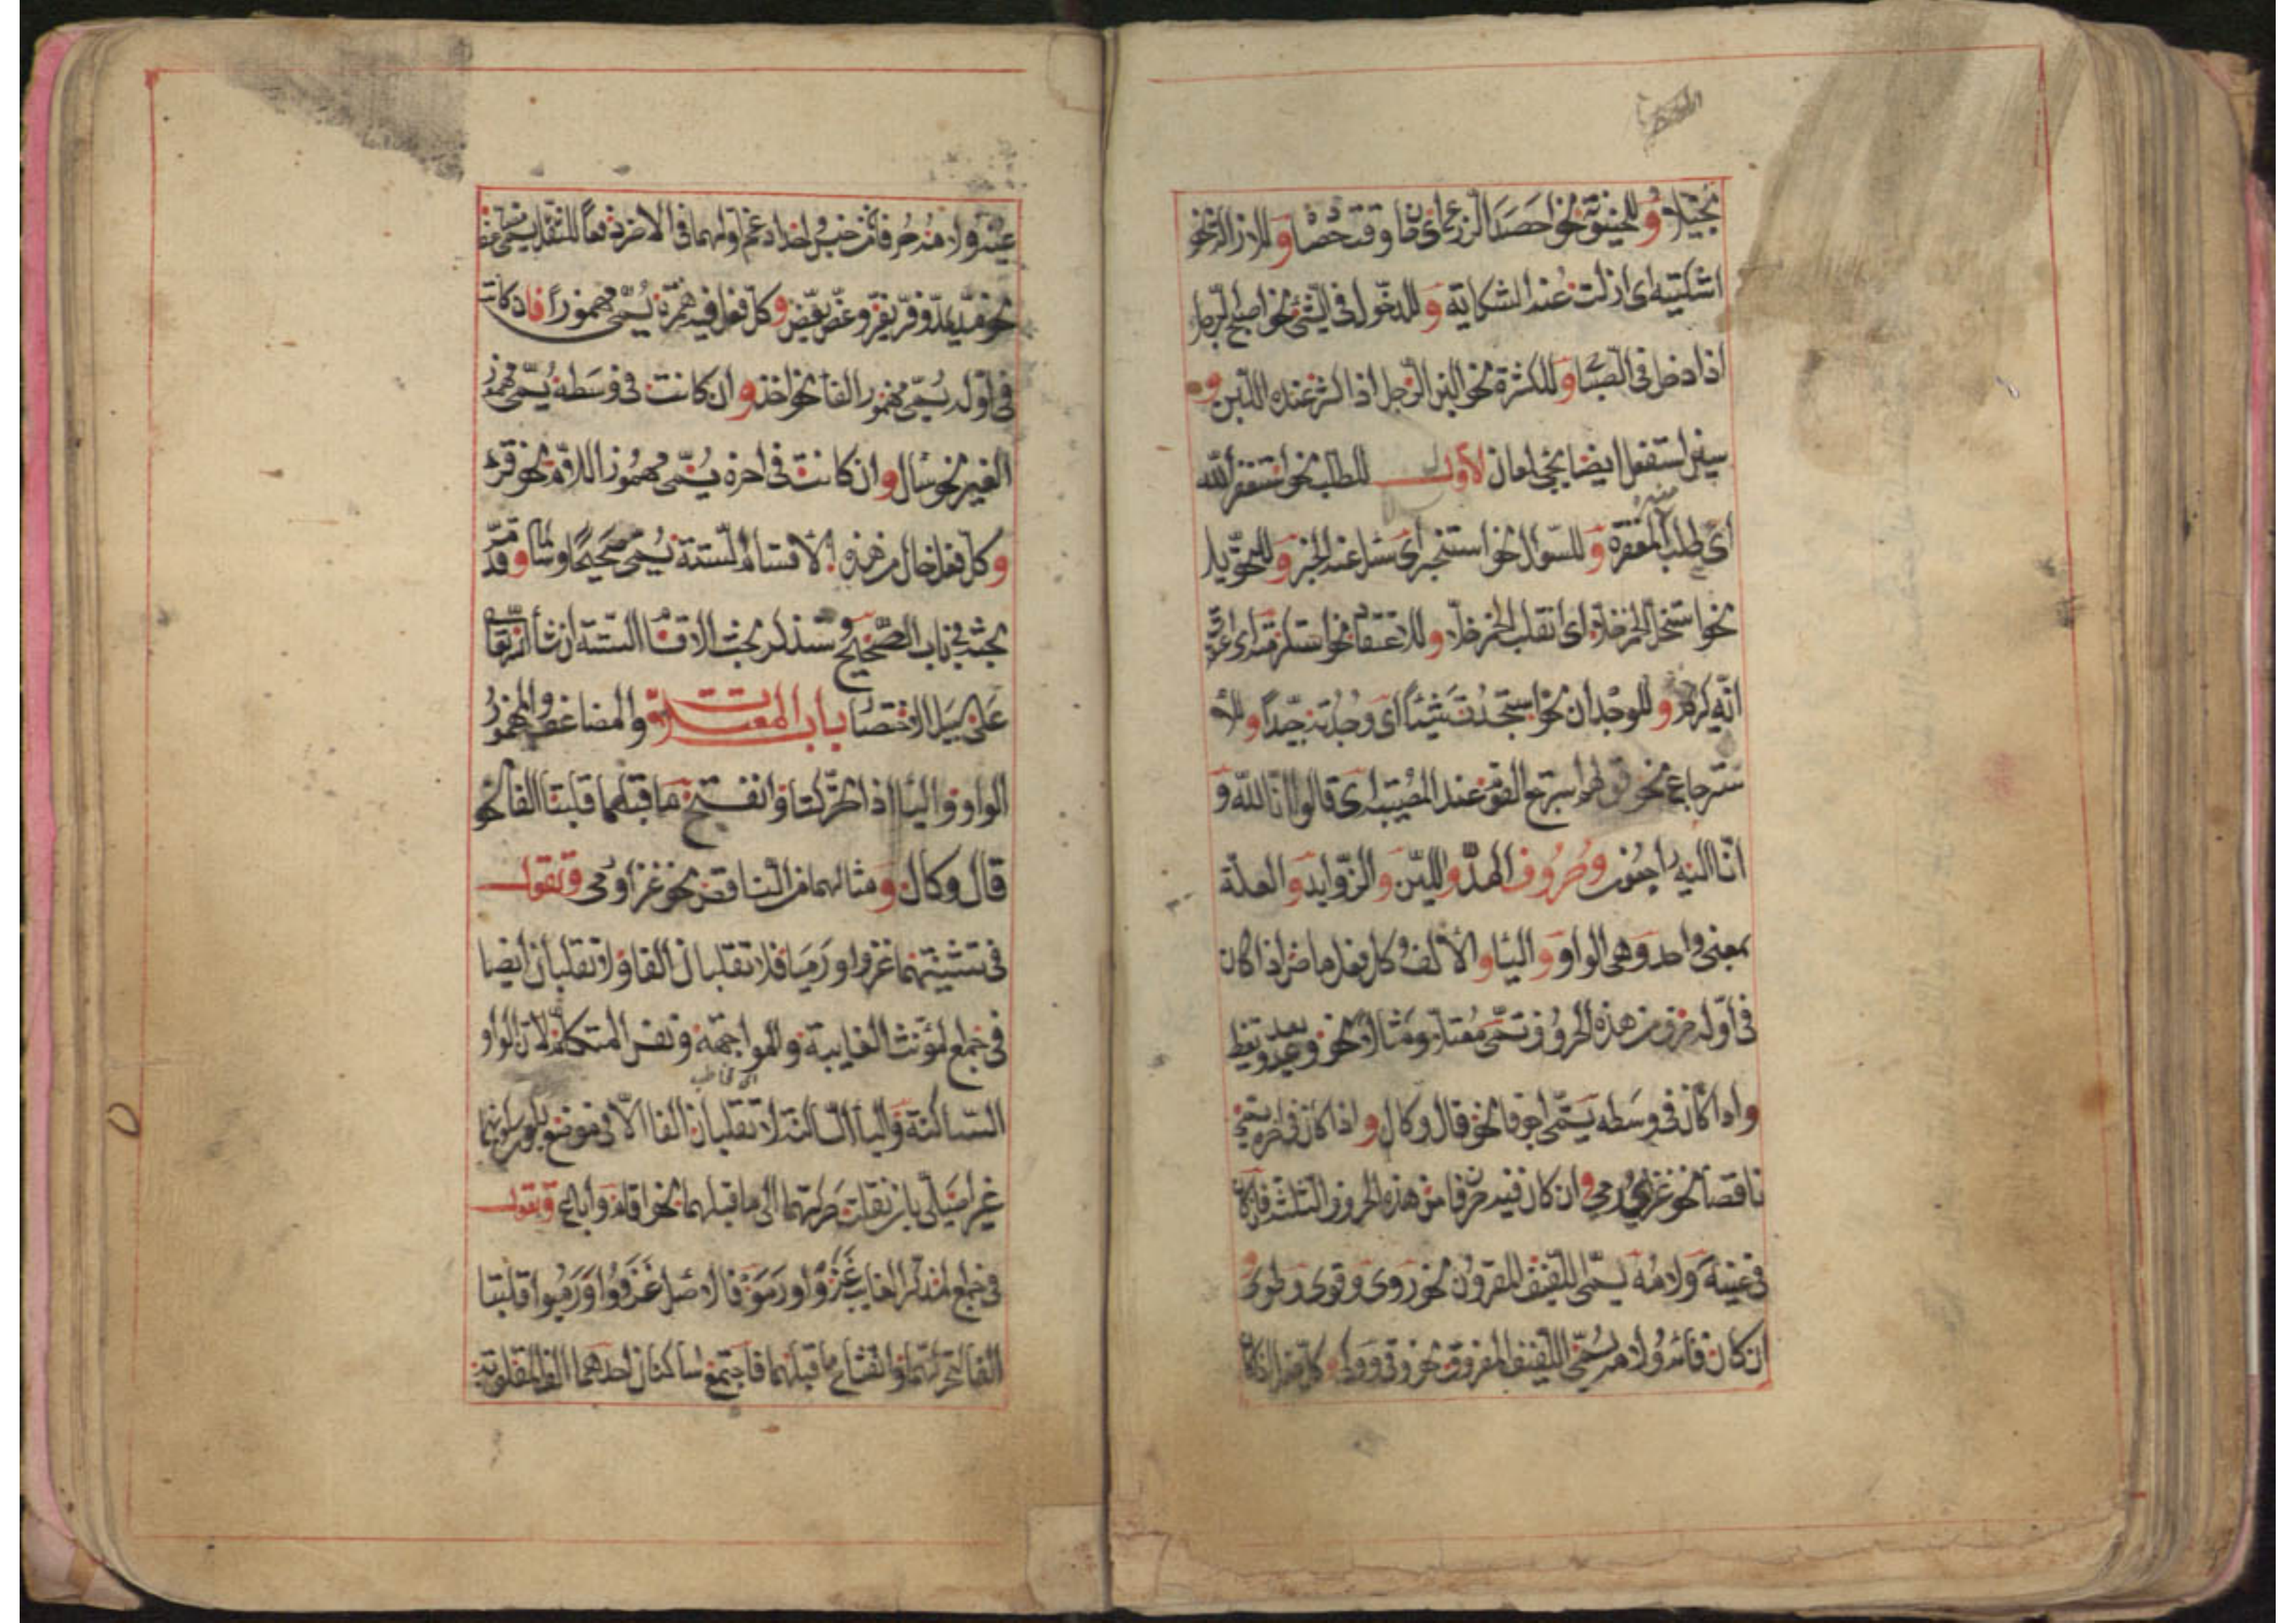 بخيلا وللحينونة نحو احصد الزرع اى حان وقت حصاده وللازالة نحو
اشكيته اى ازلت عنه الشكاية وللدخول فى الشئ نحو اصبح الرجل
اذا دخل فى الصباح وللكثرة نحو البن الرجل اذا كثر عنده اللبن و
سين استفعل ايضا يجئ لمعان الاول للطلب نحو استغفر الله
اى طلب المغفرة منه وللسوال نحو استخبر اى سئل عنه الخبر وللتحويل
نحو استخل الخمر خلا اى انقلب الخمر خلا وللاعتقاد نحو استكرمته اى اعتقدت
انه كريم وللوجدان نحو استجدت شيئا اى وجدته جيدا وللا
سترجاع نحو قولهم استرجع القوم عند المصيبة اى قالوا انا لله و
انا اليه راجعون وحروف المد واللين والزوايد والعلة
بمعنى واحد وهى الواو والياء والالف وكل فعل ماض اذا كان
فى اوله حرف من هذه الحروف تسمى معتلا ومثالا نحو وعد ويقظ
واذا كان فى وسطه يسمى اجوفا نحو قال وكال واذا كان فى اخره يسمى
ناقصا نحو غزى ورمى وان كان فيه حرفا من هذه الحروف الثلثة فان كان
فى عينه ولامه يسمى اللفيف المقرون نحو روى وقوى وطوى و
ان كان فائه ولامه يسمى اللفيف المفروق نحو وقى وولى وكل فعل اذا كان
عينه ولامه حرفان من جنس واحد ادغم اولهما فى الاخر دفعا للثقل يسمى مضا
نحو مد يمد وفر يفر وعض يعض وكل فعل فيه همزة يسمى مهموزا فاذا كانت
فى اوله يسمى مهموز الفاء نحو اخذ وان كانت فى وسطه يسمى مهموز
العين نحو سال وان كانت فى اخره يسمى مهموز اللام نحو قرء
وكل فعل خال من هذه الاقسام الستة يسمى صحيحا وسالما وقد مر
بحثه فى باب الصحيح وسنذكر بحث الاقسام الستة ان شاء الله تعالى
على سبيل الاختصار باب المعتلات والمضاعف والمهموز
الواو والياء اذا تحركتا وانفتح ما قبلهما قلبتا الفا نحو
قال وكال ومثالهما من الناقص نحو غزا ورمى وتقول
فى تثنيتهما غزوا ورميا فلا تقلبان الفا ولا تقلبان ايضا
فى جمع المؤنث الغايبة والمواجهة ونفس المتكلم لان الواو
الساكنة والياء الساكنة لا تقلبان الفا الا فى موضع يكون سكونهما
غير اصلى بان نقلت حركتهما الى ما قبلهما نحو اقام واباع وتقول
فى جمع المذكر الغايب غزوا ورموا فالاصل غزووا ورميوا قلبتا
الفا لتحركهما وانفتاح ما قبلهما فاجتمع ساكنان احدهما الف المقلوبة